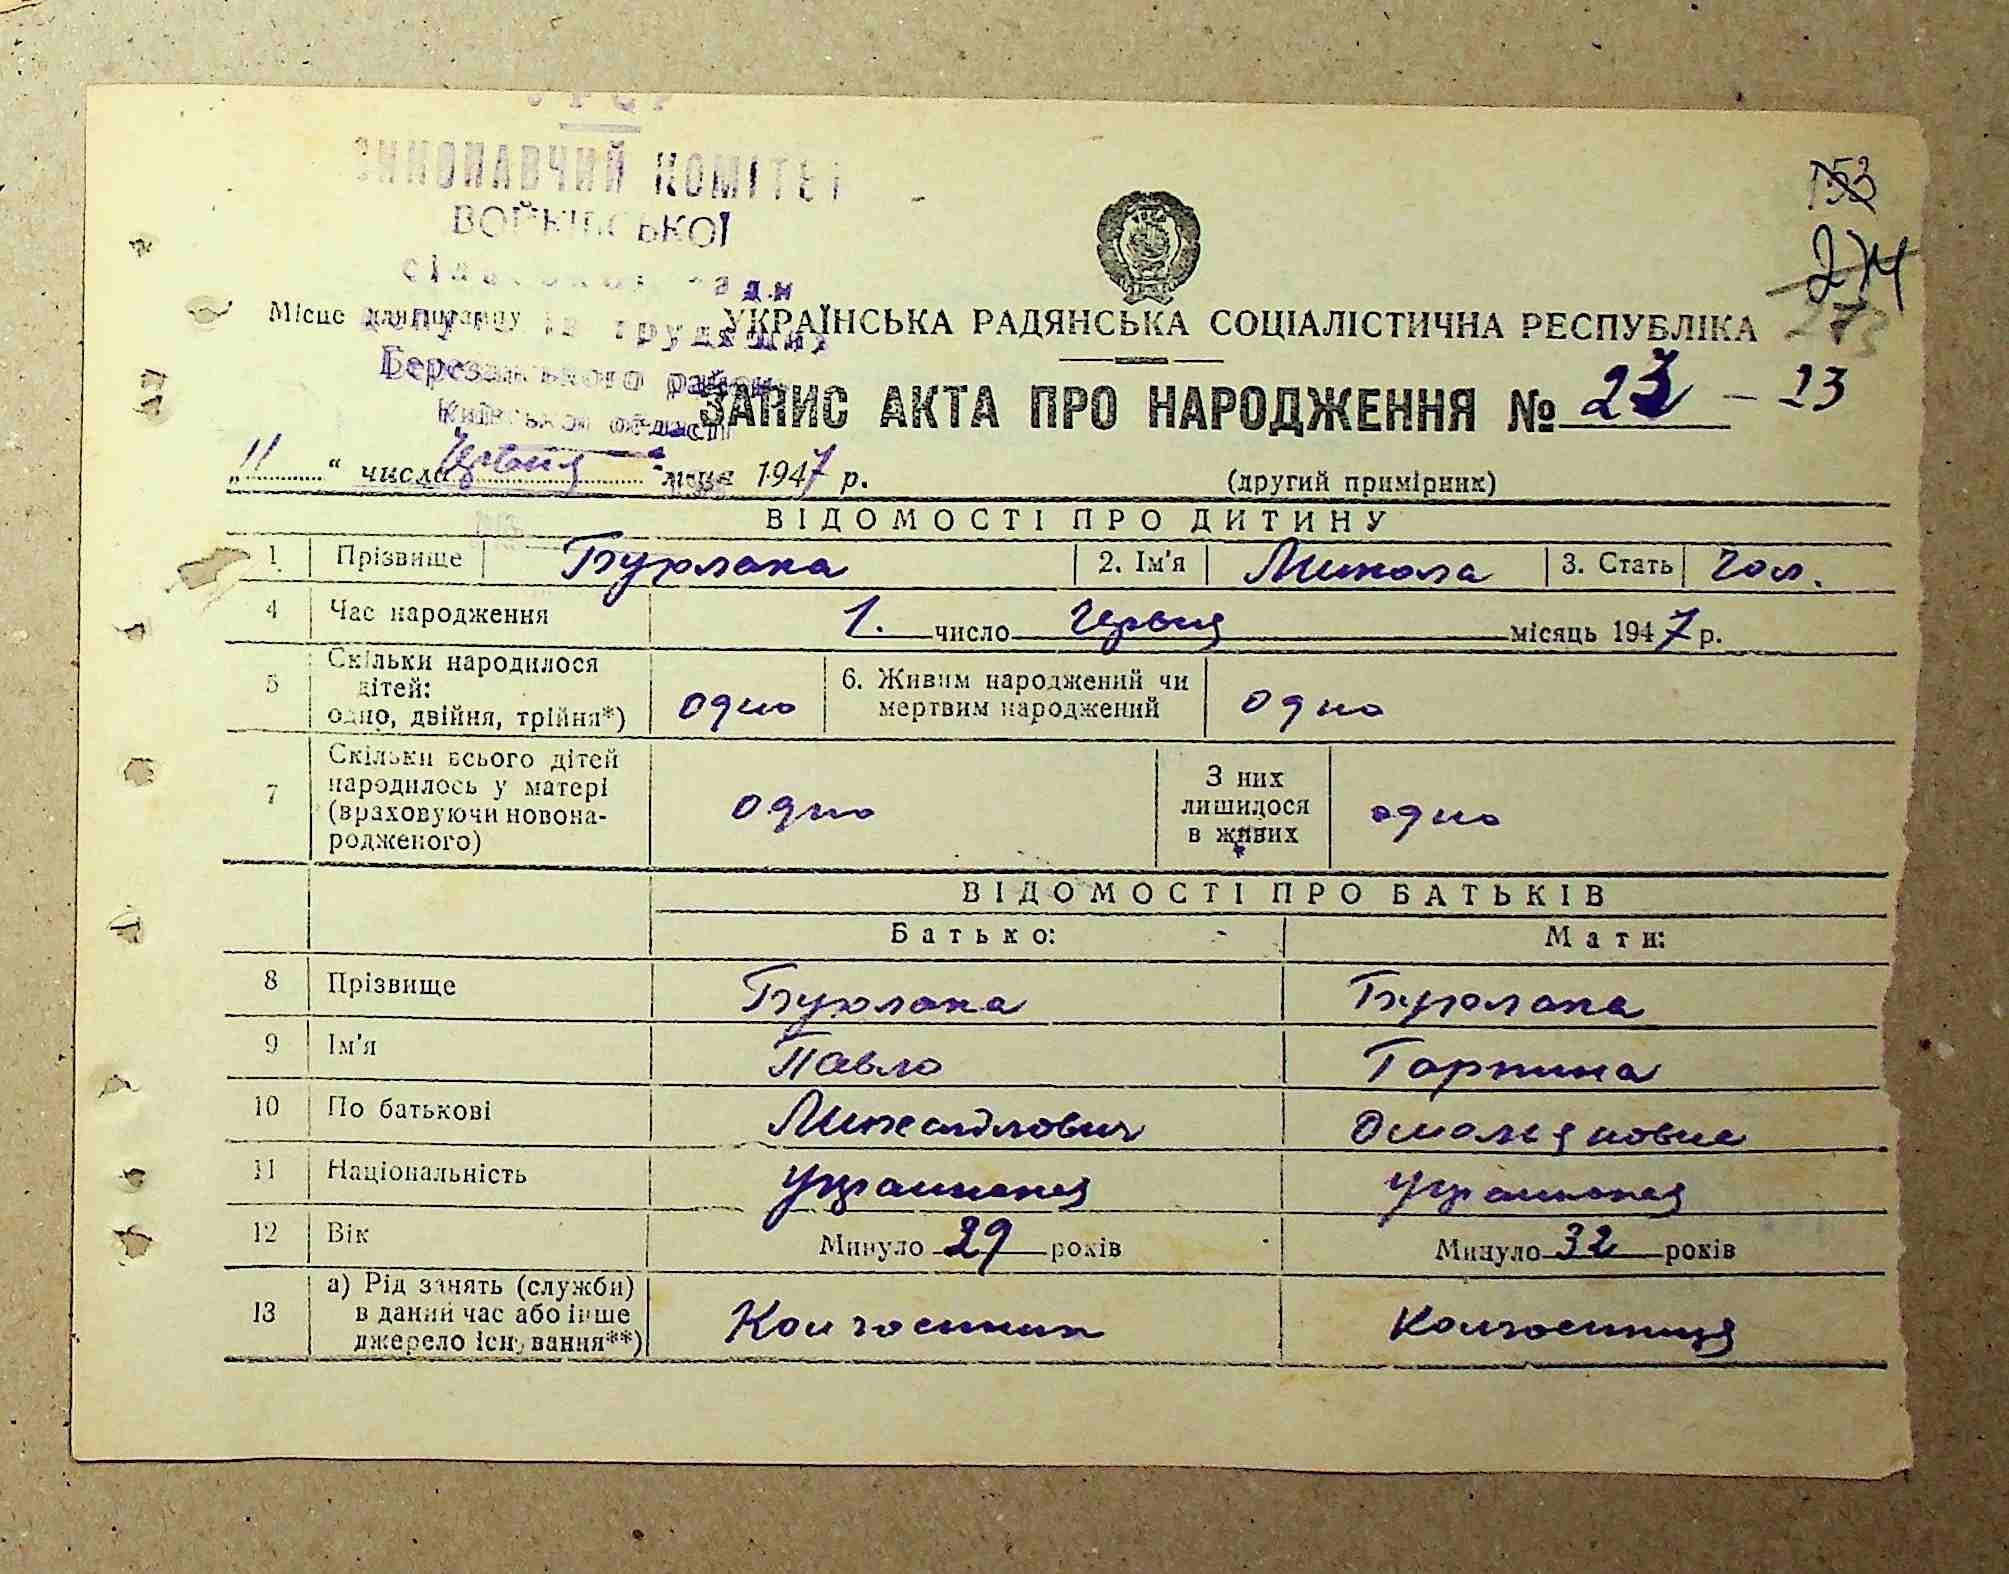 УРСР
ВИКОНАВЧИЙ КОМІТЕТ
ВОЙКІВСЬКОЇ
сільської ради
депутатів трудящих
Березанського району
Київської області
153
274
273
Місце для штампу
УКРАЇНСЬКА РАДЯНСЬКА СОЦІАЛІСТИЧНА РЕСПУБЛІКА
ЗАПИС АКТА ПРО НАРОДЖЕННЯ № 23 - 23
„11“ числа червня м-ця 1947 р.
(другий примірник)
ВІДОМОСТІ ПРО ДИТИНУ
1 Прізвище Бурлака 2. Ім'я Микола 3. Стать Чол.
4 Час народження 1. число червня місяць 1947 р.
5 Скільки народилося дітей: одно, двійня, трійня*) одно 6. Живим народжений чи мертвим народжений одно
7 Скільки всього дітей народилось у матері (враховуючи новонародженого) одно З них лишилося в живих одно
ВІДОМОСТІ ПРО БАТЬКІВ
Батько: Мати:
8 Прізвище Бурлака Бурлака
9 Ім'я Павло Горпина
10 По батькові Михайлович Омеляновна
11 Національність українець українка
12 Вік Минуло 29 років Минуло 32 років
13 а) Рід занять (служби) в даний час або інше джерело існування**) Колгоспник колгоспниця